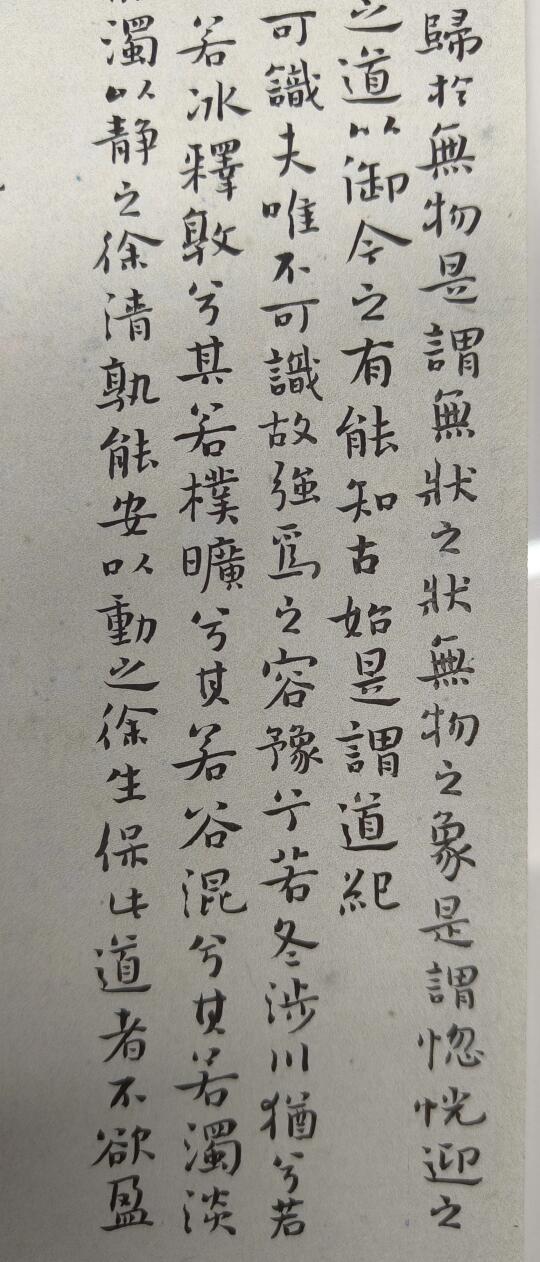 歸於無物是謂無狀之狀無物之象是謂惚恍迎之
之道以御今之有能知古始是謂道紀
可識夫唯不可識故強為之容豫兮若冬涉川猶兮若
若冰釋敦兮其若樸曠兮其若谷混兮其若濁淡
濁以靜之徐清孰能安以動之徐生保此道者不欲盈